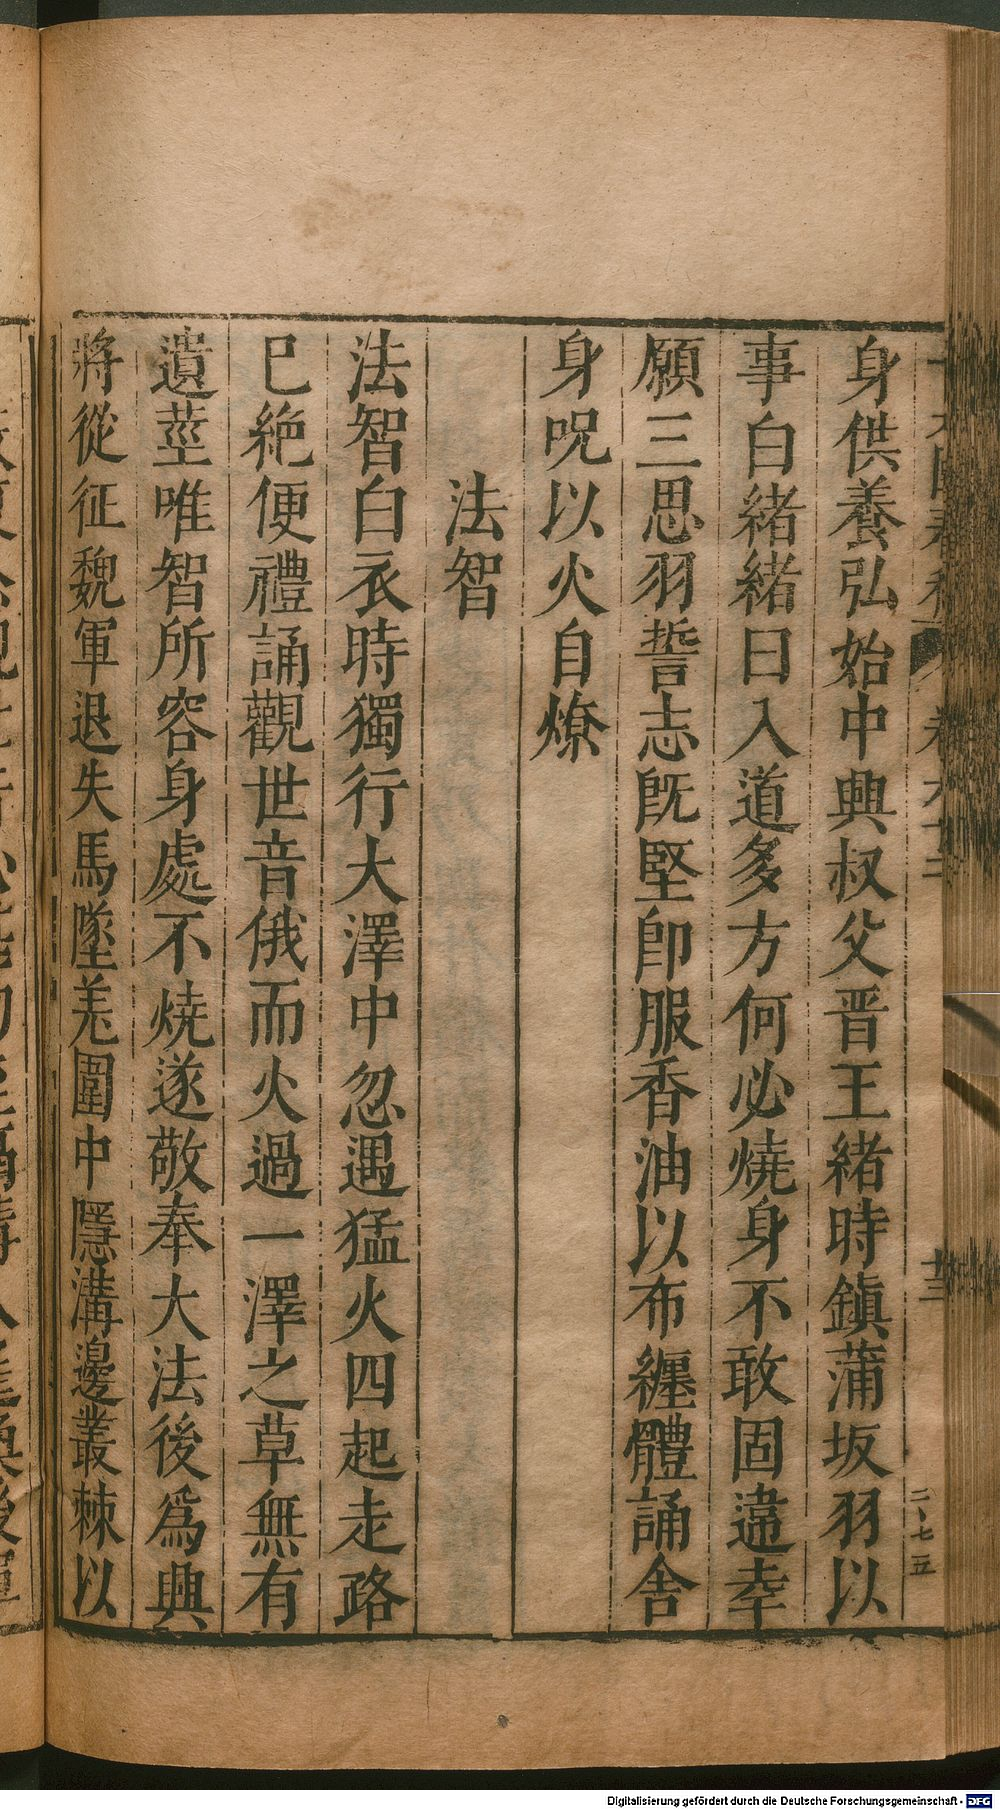 身供養弘始中興叔父晋王緒時鎭蒲坂羽以
事白緒緒曰入道多方何必燒身不敢固違幸
願三思羽誓志旣堅卽服香油以布纏體誦舍
身呪以火自燎
法智
法智白衣時獨行大澤中忽遇猛火四起走路
已絶便禮誦觀世音俄而火過一澤之草無有
遺莖唯智所容身處不燒遂敬奉大法後爲興
將從征魏軍退失馬墜羌圍中隱溝邊叢棘以
二、七五
Digitalisierung gefördert durch die Deutsche Forschungsgemeinschaft - DFG